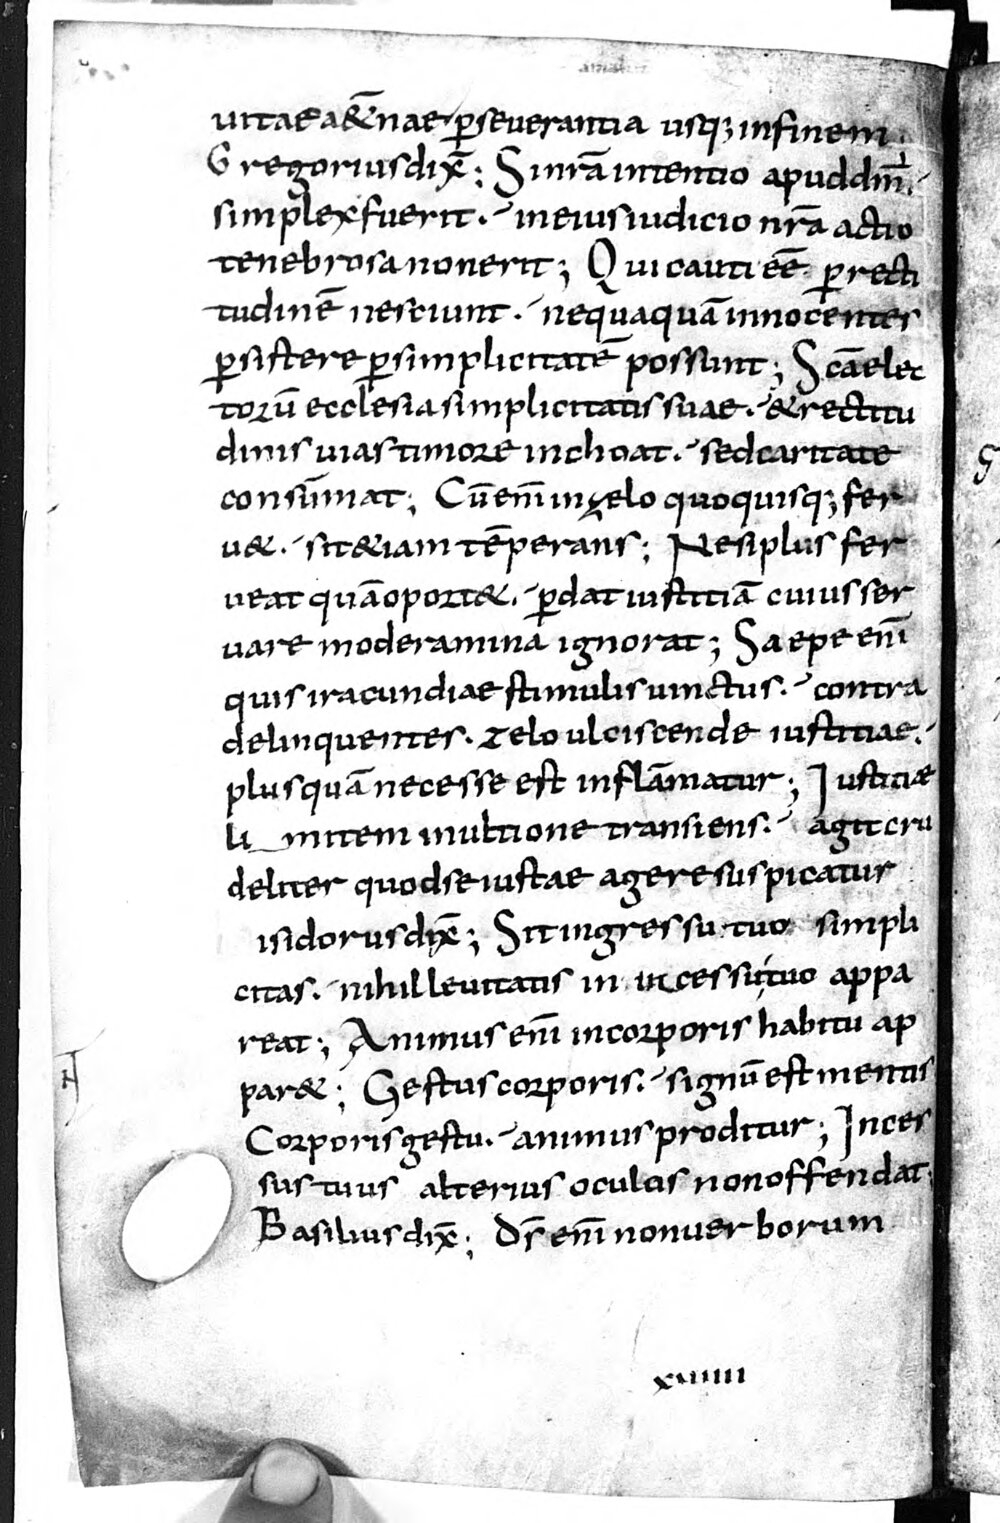 uitae a&̄nae ꝑseuerantia usq; infinem;
Gregorius dix̄; Si nr̄a intentio apud dm̄.
simplex fuerit. in eius iudicio nr̄a actio
tenebrosa non erit; Qui cauti eē ꝑ recti
tudinē nesciunt. nequaquā innocenter
ꝑsistere ꝑ simplicitatē possunt; Scā elec
torū ecclesia simplicitatis suae. & rectitu
dinis uias timore inchoat. sed caritate
consūmat; Cū enī in zelo quo quisq; fer
u&. sit &iam tēperans; Ne si plus fer
ueat quā oport&. ꝑdat iustitiā cuius ser
uare moderamina ignorat; Saepe enī
quis iracundiae stimulis uinctus. contra
delinquentes. zelo ulciscende iustitiae.
plus quā necesse est inflāmatur; Iusticiæ
li mitem in ultione transiens. agit cru
deliter quod se iustae agere suspicatur
isidorus dix̄; Sit ingressu tuo simpli
citas. nihil leuitatis in incessu tuo appa
reat; Animus enī in corporis habitu ap
par&; Gestus corporis. signū est mentis
Corporis gestu. animus proditur; Inces
sus tuus alterius oculos non offendat;
Basilius dix̄; Ds̄ enī non uerborum
xuiiii